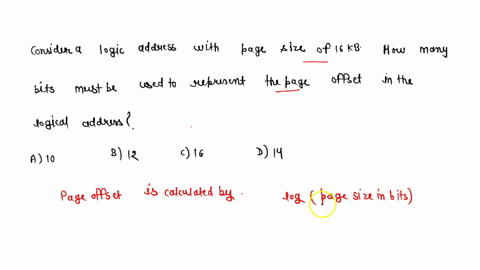 Consider a logic address with page size of 16 KB. How many
bits must be used to represent the page offset in the
logical address?
A) 10 B) 12 C) 16 D) 14
Page offset is calculated by. log (page size in bits)